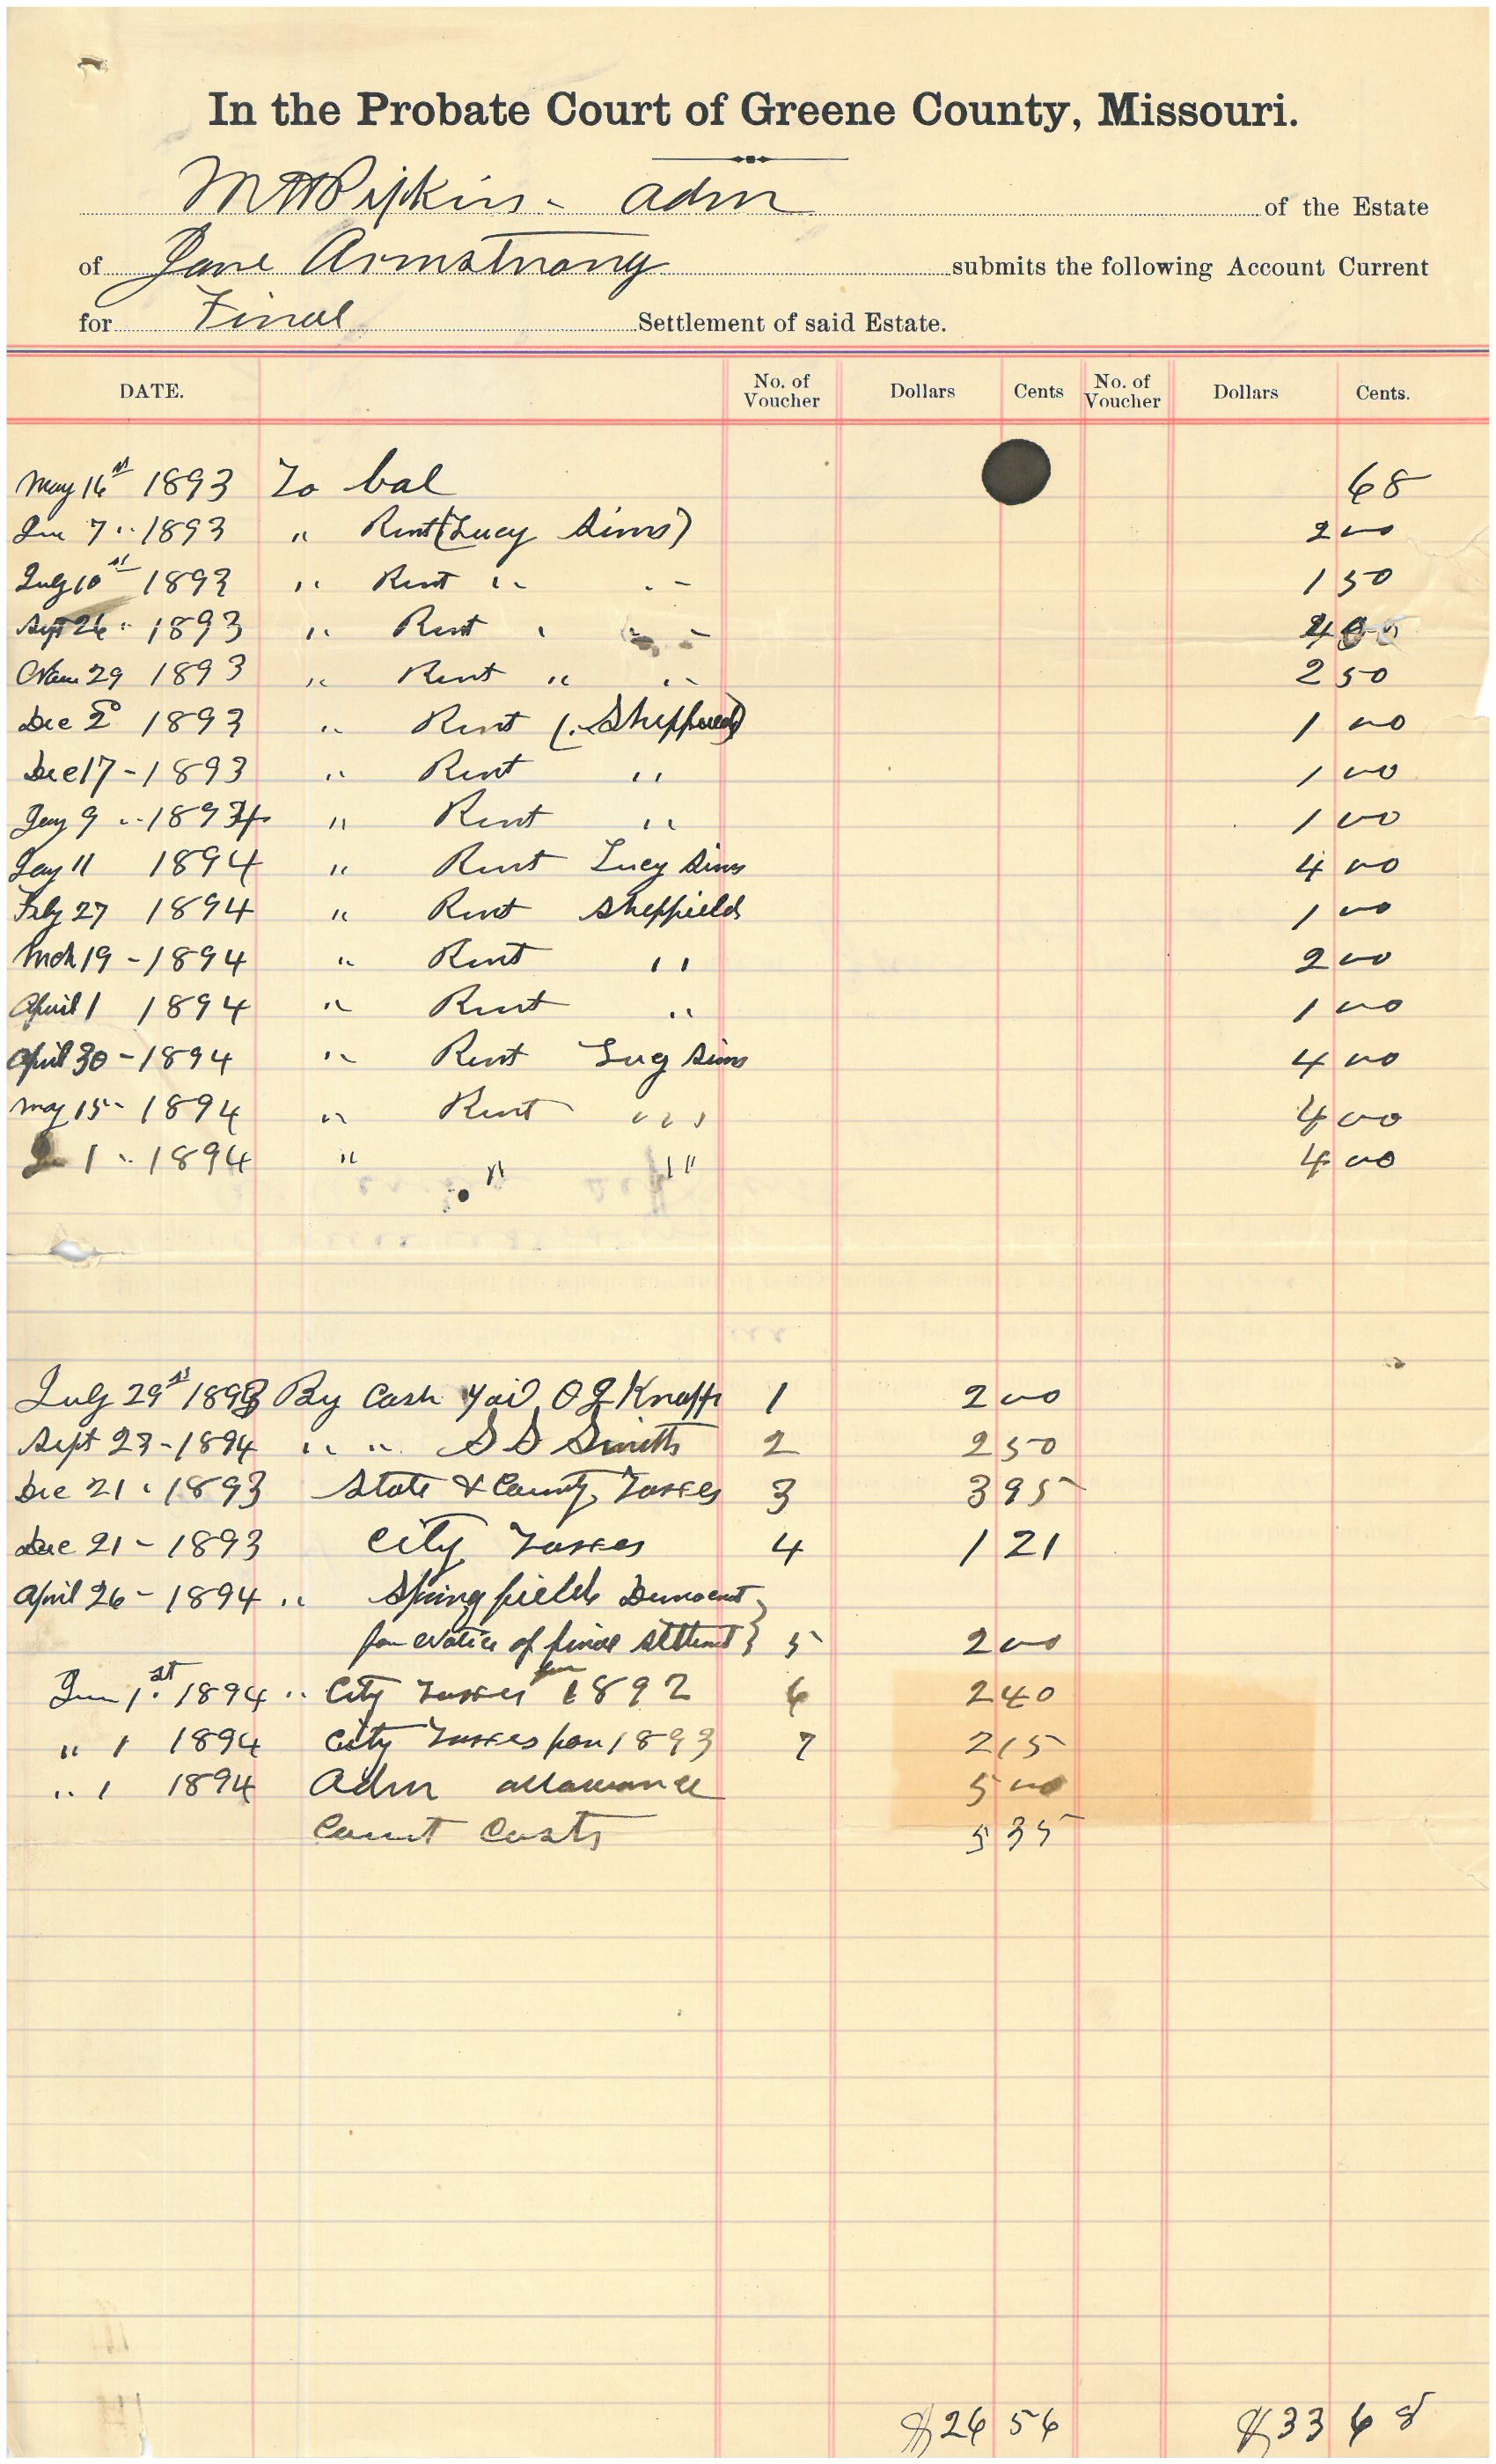 In the Probate Court of Greene County, Missouri.
M H Pipkins - Adm of the Estate
of Jane Armstrong submits the following Account Current
for Final Settlement of said Estate.
DATE. No. of Voucher Dollars Cents No. of Voucher Dollars Cents.
May 16st 1893 To bal 68
Jun 7 " 1893 " Rent (Lucy Sims) 2 00
July 10st 1893 " Rent " " 1 50
Sept 26 " 1893 " Rent " " 4 00
Nam 29 1893 " Rent " " 2 50
Dec 2d 1893 " Rent (Sheffield) 1 00
Dec 17 - 1893 " Rent " 1 00
Jany 9 " 1894 " Rent " 1 00
Jay 11 1894 " Rent Lucy Sims 4 00
Feby 27 1894 " Rent Sheffield 1 00
Mch 19 - 1894 " Rent " 2 00
April 1 1894 " Rent " 1 00
April 30 - 1894 " Rent Lucy Sims 4 00
May 15 - 1894 " Rent " " 4 00
Jun 1 " 1894 " " " 4 00
July 29st 1893 By Cash paid O G Knapp 1 2 00
Sept 23 - 1894 " " S S Smith 2 2 50
Dec 21 " 1893 State & County Taxes 3 3 95
Dec 21 - 1893 City Taxes 4 1 21
April 26 - 1894 " Springfield Democrat
for Notice of final settlment } 5 2 00
Jun 1st 1894 " City Taxes for 1892 6 2 40
" 1 1894 City Taxes for 1893 7 2 15
" 1 1894 Adm allowance 5 00
Court Costs 5 35
$26 56 $33 68